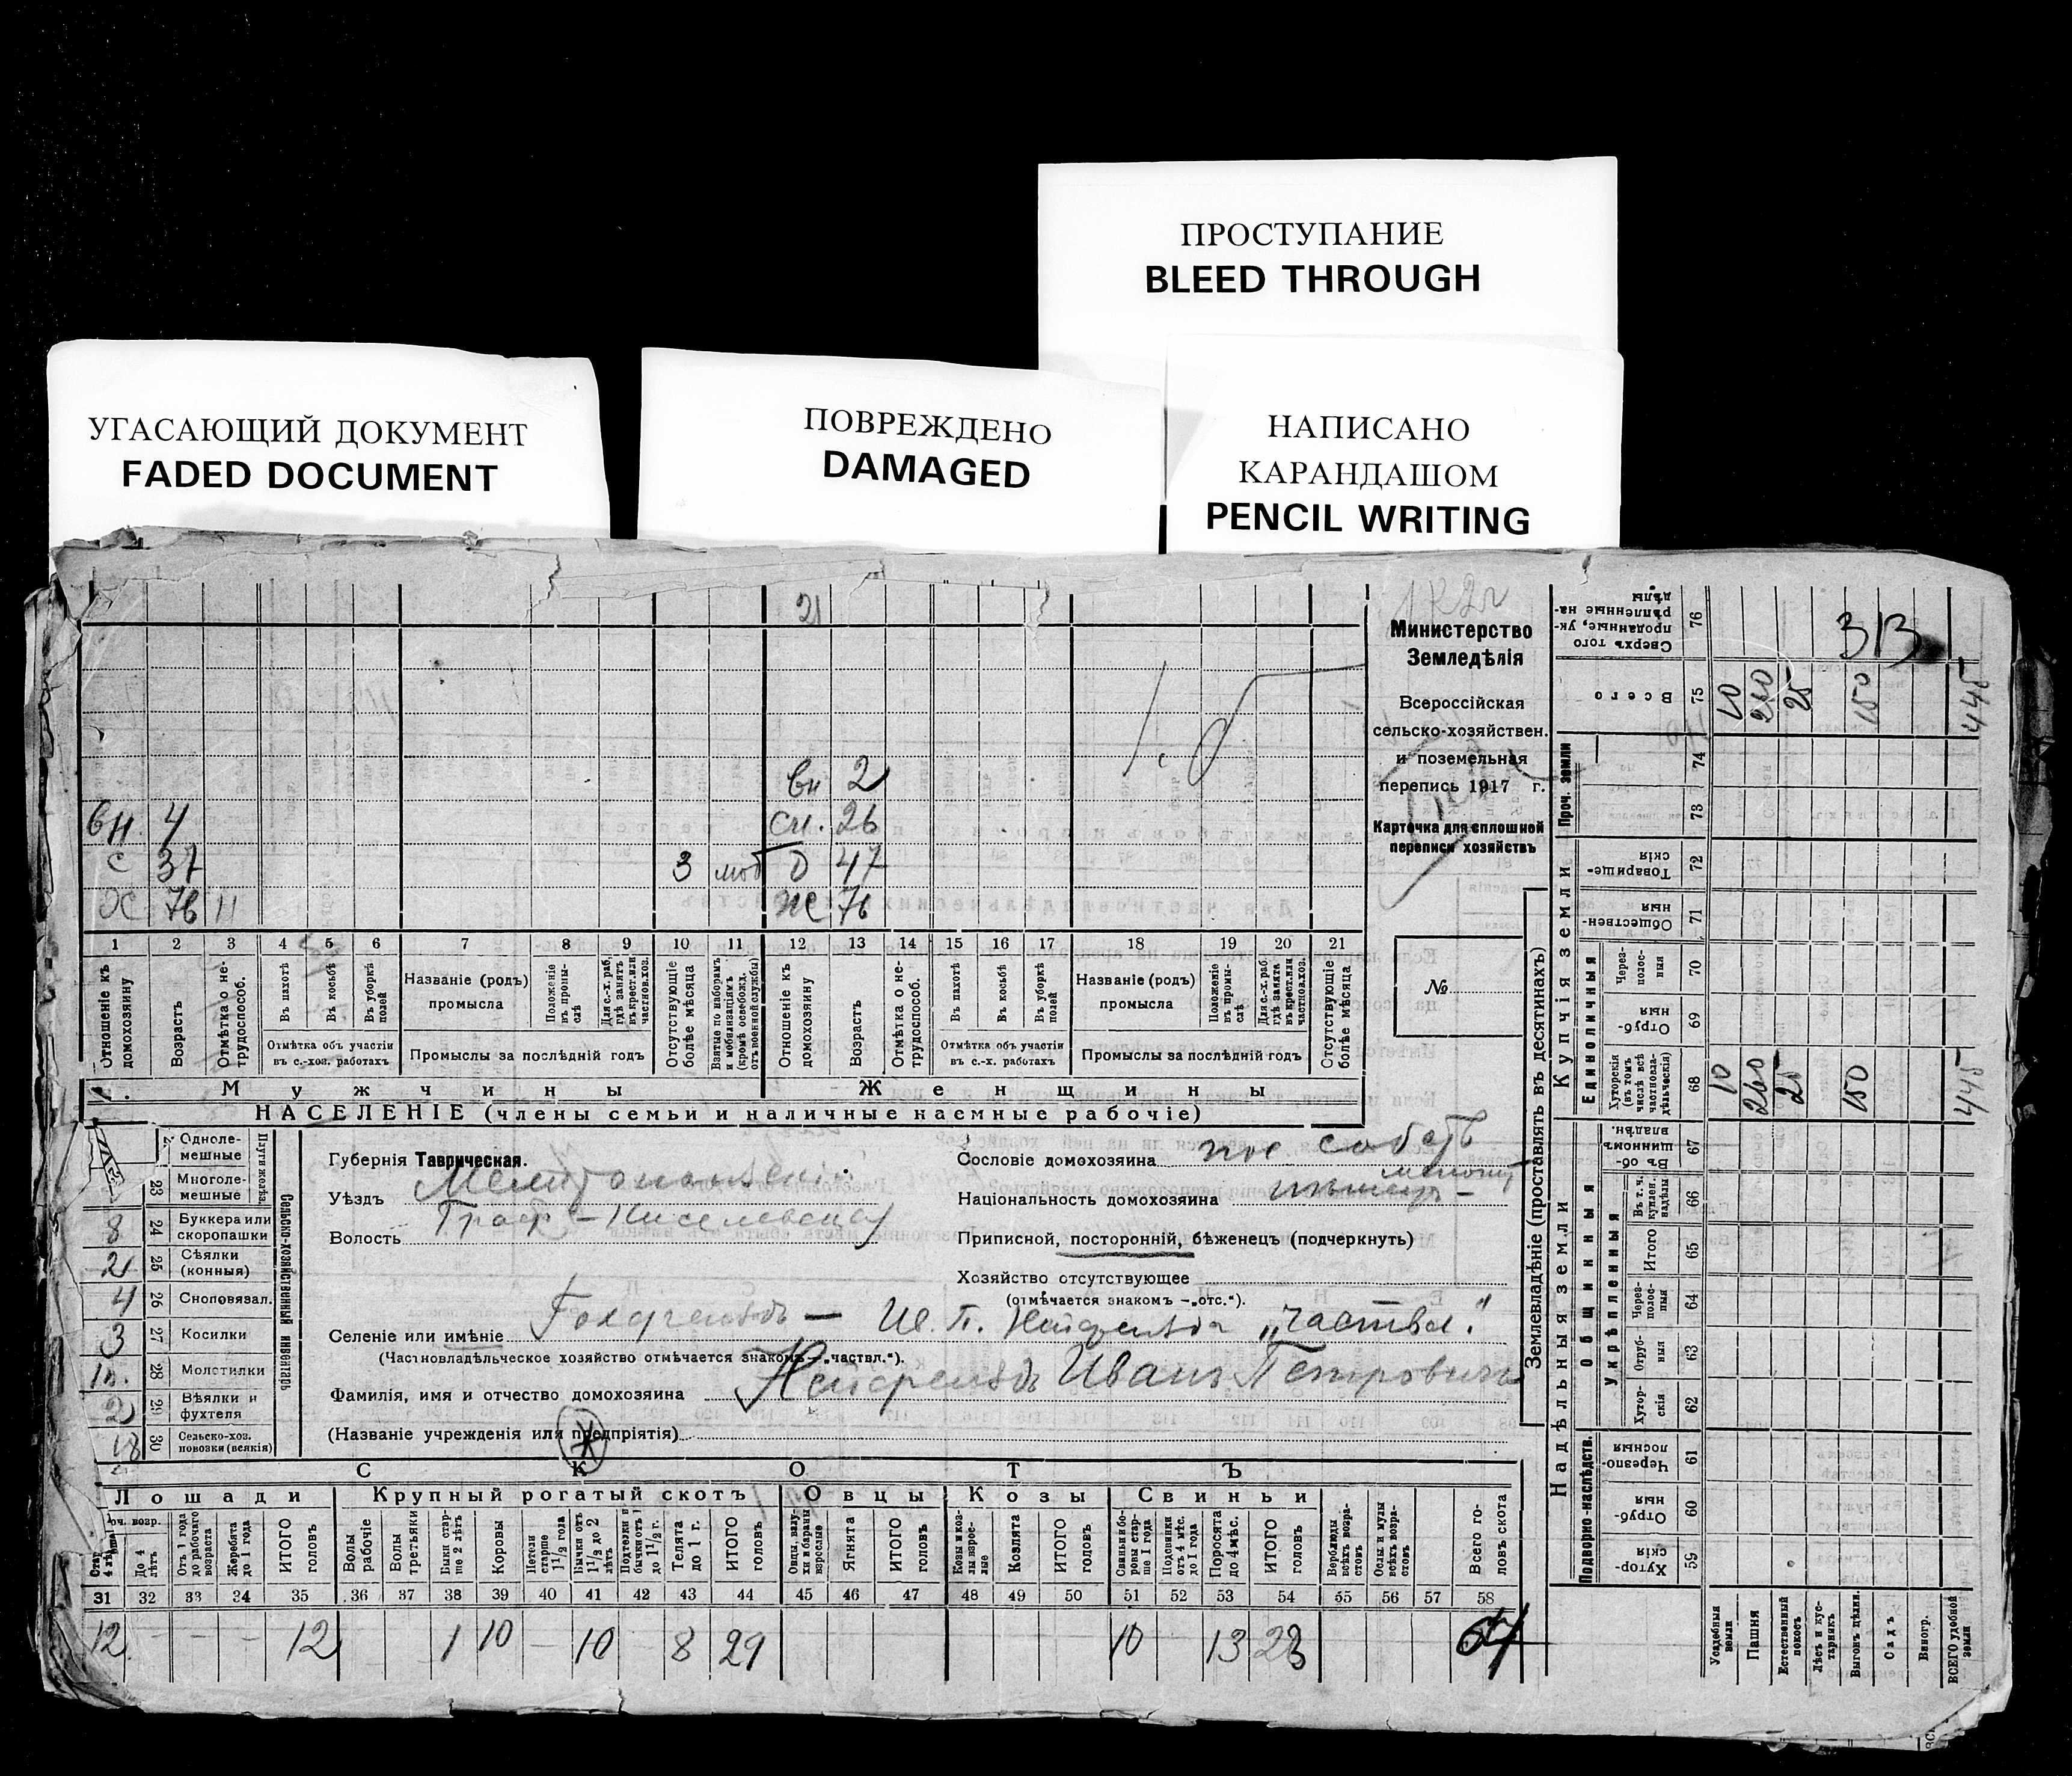 ПРОСТУПАНИЕ
BLEED THROUGH
УГАСАЮЩИЙ ДОКУМЕНТ
FADED DOCUMENT
ПОВРЕЖДЕНО
DAMAGED
НАПИСАНО
КАРАНДАШОМ
PENCIL WRITING
21
вн 2
вн. 4 сн. 26
с 37 3 моб д 47
Х 76 н ж 76
1 2 3 4 5 6 7 8 9 10 11 12 13 14 15 16 17 18 19 20 21
Отношеніе къ домохозяину
Возрастъ
Отмѣтка о не-трудоспособ.
Въ пахотѣ
Въ косьбѣ
Въ уборкѣ полей
Отмѣтка объ участіи въ с.-хоз. работахъ
Названіе (родъ) промысла
Положеніе въ промы-слѣ
Для с.-х. раб. гдѣ занятъ въ крест. или частновл. хоз.
Промыслы за послѣдній годъ
Отсутствующіе болѣе мѣсяца
Взятые по наборамъ и мобилизаціямъ (кромѣ освобожд. отъ военной службы)
Отношеніе къ домохозяину
Возрастъ
Отмѣтка о не-трудоспособ.
Въ пахотѣ
Въ косьбѣ
Въ уборкѣ полей
Отмѣтка объ участіи въ с.-х. работахъ
Названіе (родъ) промысла
Положеніе въ промы-слѣ
Для с.-х. раб. гдѣ занята въ крест. или частновл. хоз.
Промыслы за послѣдній годъ
Отсутствующіе болѣе мѣсяца
Мужчины Женщины
НАСЕЛЕНІЕ (члены семьи и наличные наемные рабочіе)
Министерство
Земледѣлія
Всероссійская
сельско-хозяйствен.
и поземельная
перепись 1917 г.
Карточка для сплошной
переписи хозяйствъ
№
Сельско-хозяйственный инвентарь
Одноле-мешные
23 Многоле-мешные
8 24 Буккера или скоропашки
2 25 Сѣялки (конныя)
4 26 Сноповязал.
3 27 Косилки
28 Молотилки
2 29 Вѣялки и фухтеля
18 30 Сельско-хоз. повозки (всякія)
Губернія Таврическая.
Уѣздъ Мелитопольскій
Волость Граф-Киселевская
Селеніе или имѣніе И. П. Нейфельда „частвл."
(Частновладѣльческое хозяйство отмѣчается знакомъ—„частвл.").
Фамилія, имя и отчество домохозяина Нейфельдъ Иванъ Петровичъ
(Названіе учрежденія или предпріятія)
Сословіе домохозяина пос собств
Національность домохозяина
Приписной, посторонній, бѣженецъ (подчеркнуть)
Хозяйство отсутствующее
(отмѣчается знакомъ —„отс.").
СКОТЪ
Лошади Крупный рогатый скотъ Овцы Козы Свиньи
До 4 лѣтъ
Отъ 1 года до рабочаго возраста
Жеребята до 1 года
ИТОГО головъ
Волы рабочіе
Волы третьяки
Быки стар-ше 2 лѣтъ
Коровы
Нетели старше 1½ года
Бычки отъ 1½ до 2 лѣтъ
Подтелки и бычки отъ 1 до 1½ г.
Телята до 1 г.
ИТОГО головъ
Овцы, валу-хи и бараны взрослые
Ягнята
ИТОГО головъ
Козы и коз-лы взрос-лые
Козлята
ИТОГО головъ
Свиньи бо-ровы стар-ше 1 года
Подсвинки отъ 4 мѣс. до 1 года
Поросята до 4 мѣс.
ИТОГО головъ
Верблюды всѣхъ возра-стовъ
Ослы и мулы всѣхъ возра-стовъ
Всего го-ловъ скота
31 32 33 34 35 36 37 38 39 40 41 42 43 44 45 46 47 48 49 50 51 52 53 54 55 56 57 58
12 - - - 12 1 10 - 10 - 8 29 10 13 23 64
Землевладѣніе (проставлять въ десятинахъ)
Надѣльныя земли Купчія земли Проч. земли
Подворно-наслѣдств. Общинныя Укрѣпленныя Единоличныя
Сверхъ того проданные, ук-рѣпленные на-дѣлы 76 313
Всего 75 10 260 25 150 445
74
73
Товарище-скія 72
Обществен-ныя 71
Через-полос-ныя 70
Отруб-ныя 69
Хуторскія (въ томъ числѣ всѣ частновла-дѣльческія) 68 10 260 25 150 445
Въ об-щинномъ владѣн. 67
Въ т. ч. куплен. надѣлы 66
Итого 65
Через-полос-ныя 64
Отруб-ныя 63
Хутор-скія 62
Черезпо-лосныя 61
Отруб-ныя 60
Хутор-скія 59
Усадебныя земли
Пашня
Естественный покосъ
Лѣсъ и кус-тарникъ
Выгонъ дѣлян.
Садъ
Виногр.
ВСЕГО удобной земли